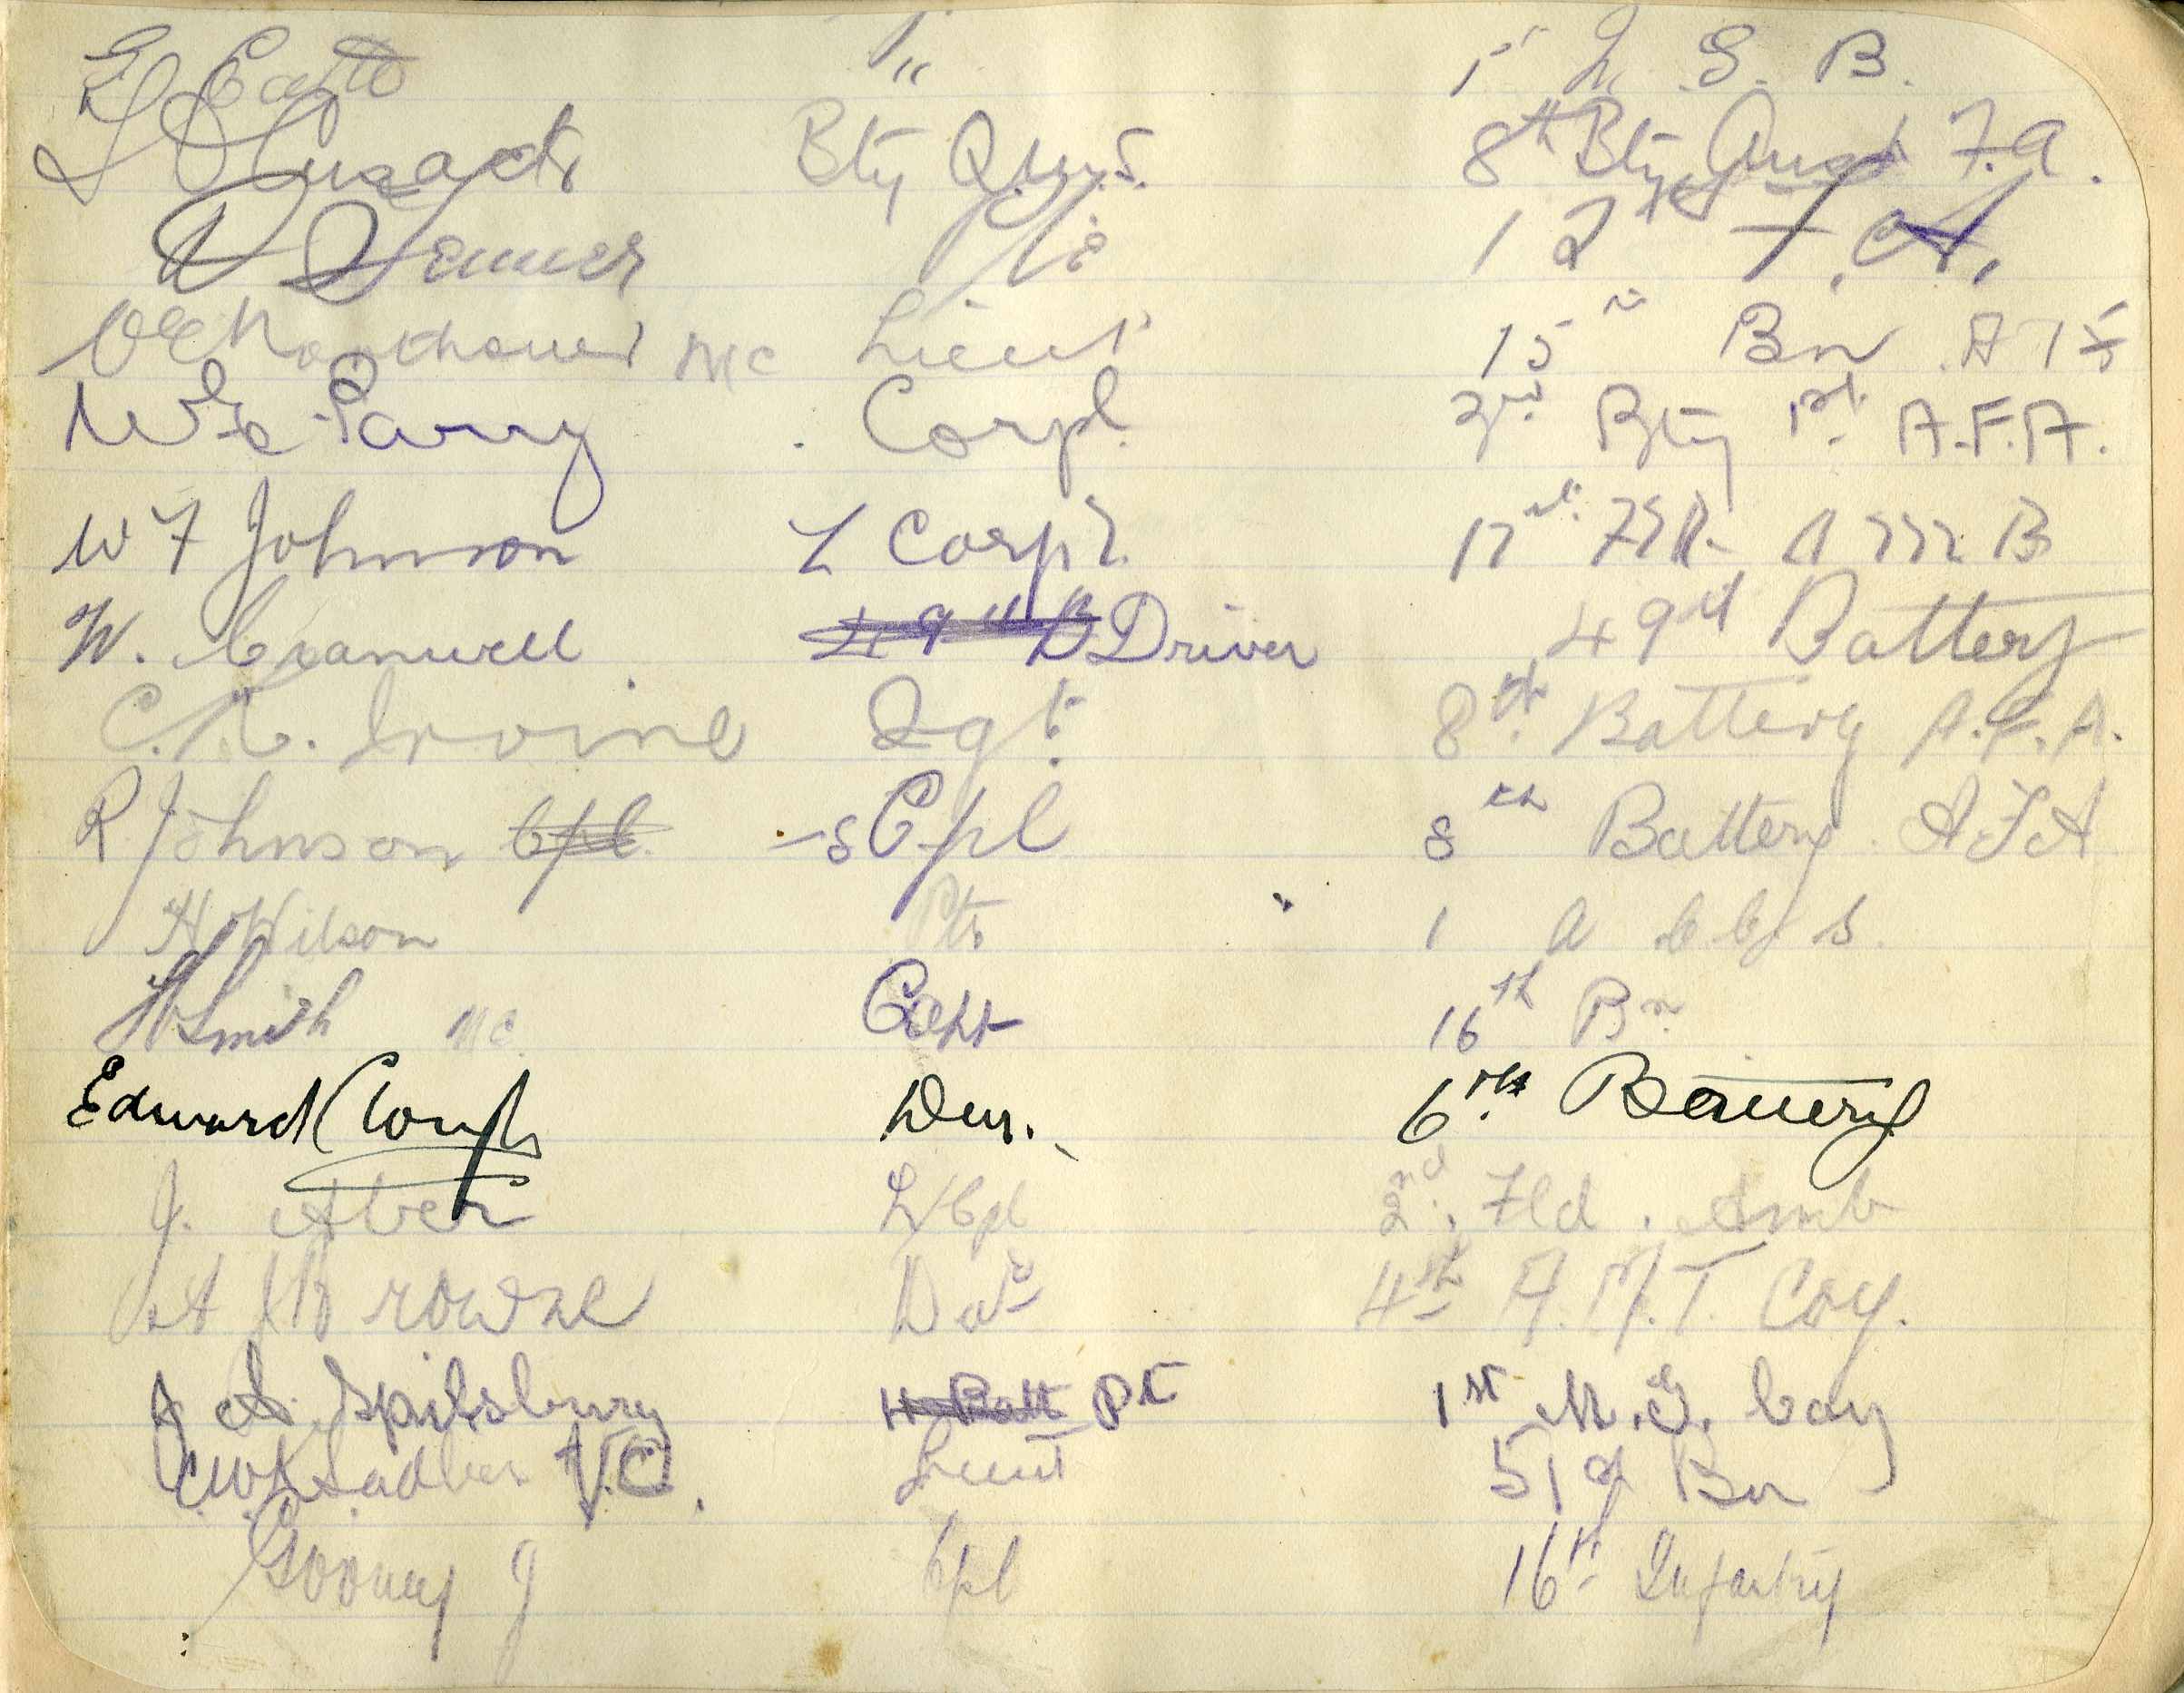 " 1st L. G. B.
Cusack Bty Q.M.S. 8th Bty Aust F.A.
12th F.A.
MC Lieut 15th Bn A I F
W G Parry Corpl. 3rd Bty 1st A.F.A.
W F Johnson L Corpl.
W. Cranwell 49th B Driver 49th Battery
C. R. Irvine Sgt. 8th Battery A.F.A.
R Johnson Cpl. Cpl 8th Battery A F A
H Wilson Pte 1 A C C S.
H Smith MC Capt 16th Bn
Edward Clough Dvr. 6th Battery
J. L/Cpl 2nd. Fld. Amb
A J Browne Dvr 4th A.M.T. Coy.
J A. Spilsbury 11 Batt Pt 1st M.G. Coy
C W K Sadlier V.C. Lieut 51st Bn
J Cpl 16th Infantry